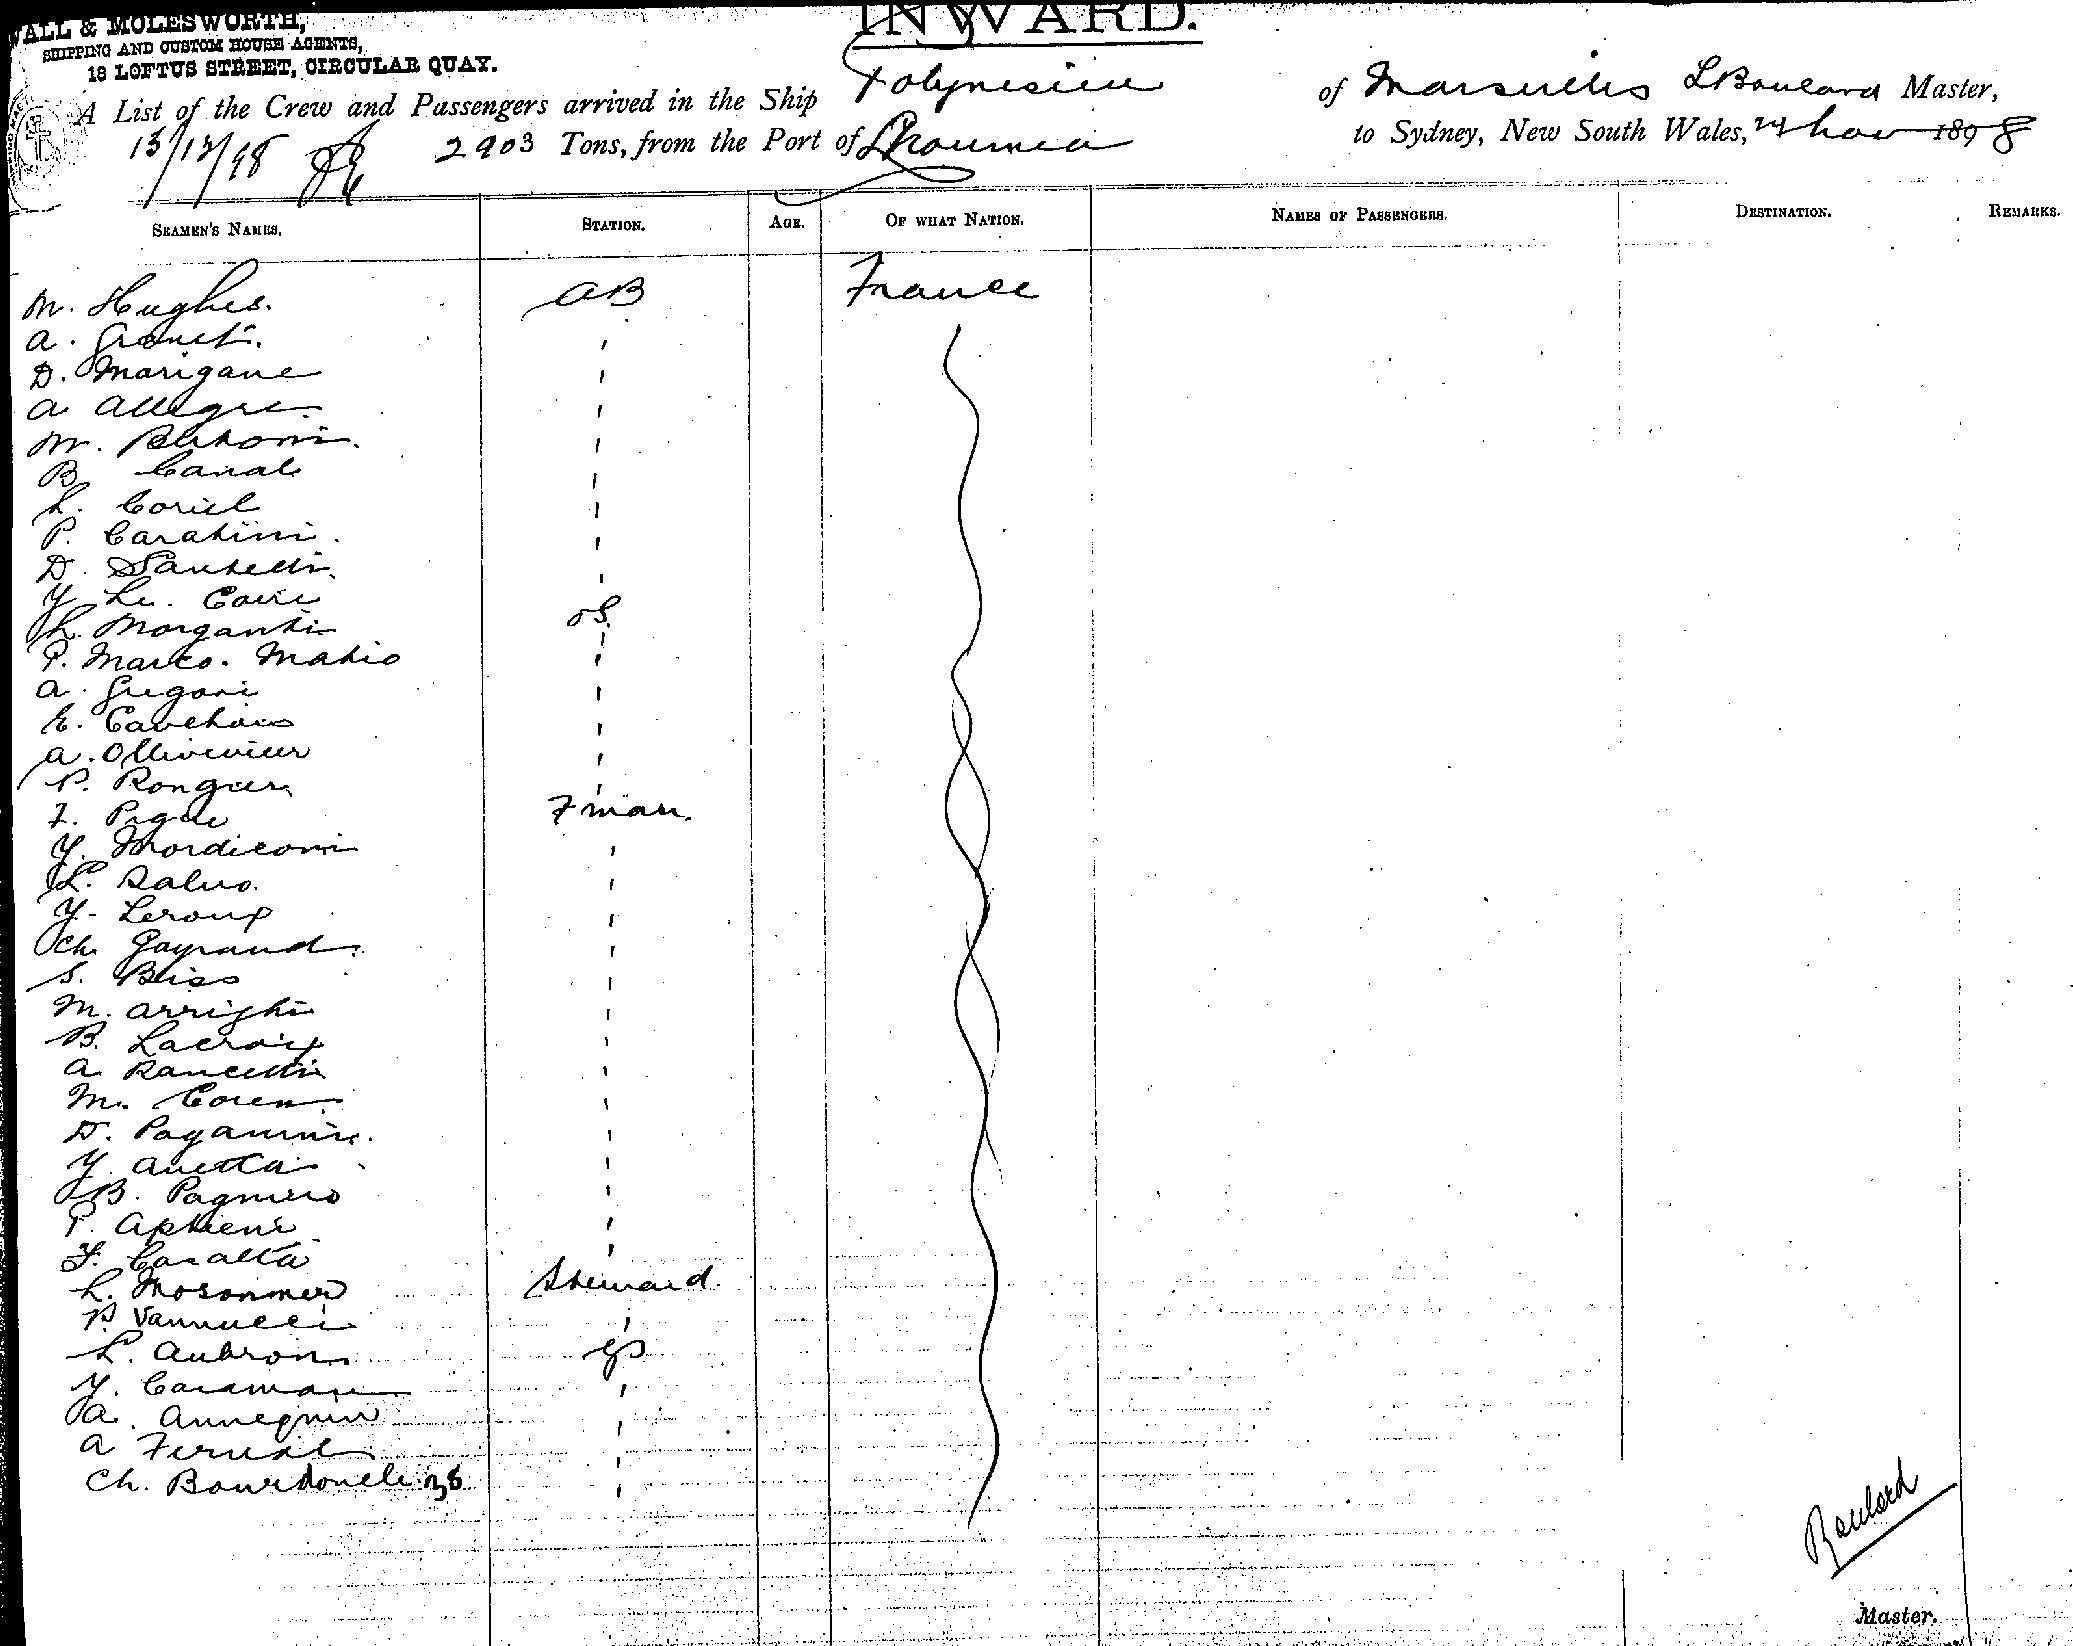 WALL & MOLESWORTH,
SHIPPING AND CUSTOM HOUSE AGENTS,
18 LOFTUS STREET, CIRCULAR QUAY.
INWARD.
A List of the Crew and Passengers arrived in the Ship Polynesien of Marseilles L Boulard Master,
13/12/98 2903 Tons, from the Port of Noumea to Sydney, New South Wales, 24 Nov 1898
SEAMEN'S NAMES. STATION. AGE. OF WHAT NATION. NAMES OF PASSENGERS. DESTINATION. REMARKS.
M. Hughes. AB France
A. Granet.
D. Marigane
A Allegre.
M. Bertoni.
B Canale
L. Coriel
P. Caratini.
D. Santelli.
Y Le. Corre
L. Morganti OS.
P. Marco. Mahio
A. Gregori
E. Cauchois
A. Ollivevier
P. Rongier
F. Pigne Fman.
Y. Mordiconi
L. Salvo.
Y. Leroux
Ch. Gayraud.
S. Biss
M. Arrighi
B. Lacroix
A Rancetti
M. Coren
D. Paganini.
Y. Avetta
B. Pagnuro
P.
F. Casalta
L. Mosonmer Steward
P. Vannucci
L. Aubron
Y. Caraman
A. Annequin
A
Ch. Bourdoncle 38
Boulard
Master.